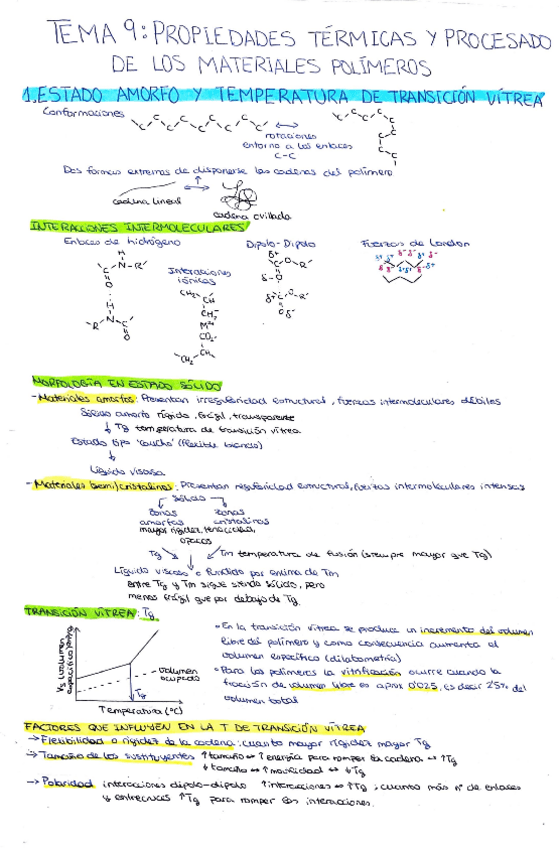 TEMA 9: PROPIEDADES TÉRMICAS Y PROCESADO
DE LOS MATERIALES POLÍMEROS
1. ESTADO AMORFO Y TEMPERATURA DE TRANSICIÓN VÍTREA
Conformaciones
rotaciones
entorno a los enlaces
C-C
Dos formas extremas de disponerse las cadenas del polímero
cadena lineal
cadena ovillada
INTERACIONES INTERMOLECULARES
Enlaces de hidrógeno
Dipolo-Dipolo
Fuerzas de London
Interaciones
iónicas
MORFOLOGÍA EN ESTADO SÓLIDO
- Materiales amorfos: Presentan irregularidad estructural, fuerzas intermoleculares débiles
Sólido amorfo rígido, frágil, transparente
↓ Tg temperatura de transición vítrea
Estado tipo 'caucho' (flexible blando)
↓
Líquido viscoso
- Materiales (semi)cristalinos: Presentan regularidad estructural, fuerzas intermoleculares intensas
Sólido
zonas amorfas
zonas cristalinas
mayor rigidez, tenacidad,
opacos
Tg
Tm temperatura de fusión (siempre mayor que Tg)
Líquido viscoso o fundido por encima de Tm
entre Tg y Tm sigue siendo sólido, pero
menos frágil que por debajo de Tg
TRANSICIÓN VÍTREA: Tg
Vs (volumen
específico)
volumen
ocupado
Tg
Temperatura (°C)
• En la transición vítrea se produce un incremento del volumen
libre del polímero y como consecuencia aumenta el
volumen específico (dilatometría)
• Para los polímeros la vitrificación ocurre cuando la
fracción de volumen libre es aprox 0'025, es decir 2'5% del
volumen total
FACTORES QUE INFLUYEN EN LA T DE TRANSICIÓN VÍTREA
→ Flexibilidad o rigidez de la cadena: cuanto mayor rigidez mayor Tg
→ Tamaño de los sustituyentes ↑tamaño → ↑energía para romper la cadena → ↑Tg
↓ tamaño → ↑movilidad → ↓Tg
→ Polaridad interacciones dipolo-dipolo ↑interacciones → ↑Tg; cuanto más nº de enlaces
y entrecruces ↑Tg para romper las interacciones.